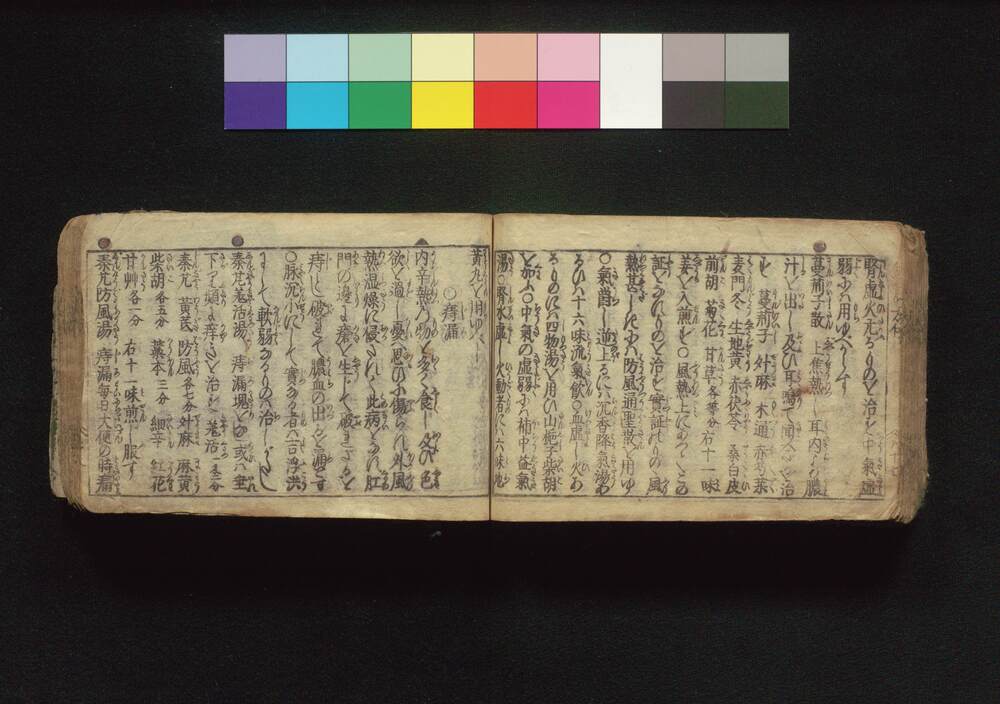 腎虚火亢るものを治ス中氣虚
弱にハ用ゆべからず
蔓荊子散 上焦熱し耳内より膿
汁を出し及び耳鳴て聞へざるを治
す 蔓荊子 升麻 木通 赤芍薬
麦門冬 生地黄 赤茯苓 桑白皮
前胡 菊花 甘草各等分右十一味
姜を入煎ず○風熱上にあつ
証にかゝれるもの治を實証のもの風
熱甚しきにハ防風通聖散を用ゆ
○氣鬱し逆上るにハ沉香降氣湯あ
るひハ十六味流氣飲○血虚し火あ
るものにハ四物湯を用ひ山梔子柴胡
を加ふ○中氣の虚弱にハ補中益氣
湯○腎水虚し火動者にハ六味地
黄丸を用ゆべし
○痔漏
内辛熱の物を多く食し及び色
欲を過し憂思ひに傷られ外風
熱湿燥に侵されて此病となる肛
門の邊に瘡を生じて破ざるを
痔とし破きて膿血の出るを漏とす
○脉沉小にして實なる者ハ吉浮洪
にして軟弱なるものハ治しがたし
秦艽羗活湯 痔漏塊を或ハ垂
下り頻に痒きを治す 羗活一匁二分
秦艽 黄芪 防風各七分升麻 麻黄
柴胡各五分 藁本三分 細辛 紅花
甘艸各一分 右十一味煎じ服す
秦艽防風湯 痔漏毎日大便の時痛